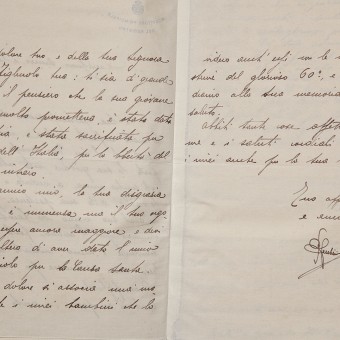 dolore tuo e della tua Signora
Figliuolo tuo: ti sia di grande
il pensiero che la sua giovane
molto prometteva, è stata data
è stata sacrificata per
dell'Italia, per la libertà del
intiero.
mio, la tua disgrazia
è immensa, ma il tuo ego
essere ancora maggiore e devi
altero di aver dato l'unico
per la Causa santa.
dolore si associa una mo
e i miei bambini che lo
indero anch'essi con le
del glorioso 60°, e
diario alla sua memoria
saluto.
Abbiti tante cose affett
me e i saluti cordiali
i miei anche per la tua
Tuo aff
e